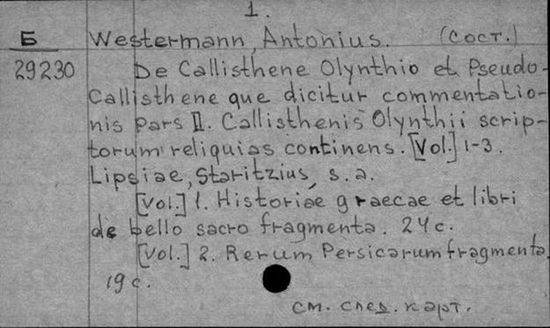 1.
Б Westermann, Antonius. (Сост.)
29230 De Callisthene Olynthio et Pseudo-
Callisthene que dicitur commentatio-
nis Pars II. Callisthenis Olynthii scrip-
torum reliquias continens. [Vol.] 1-3.
Lipsiae, Staritzius, s. a.
[Vol.] 1. Historiae graecae et libri
de bello sacro fragmenta. 24 с.
[Vol.] 2. Rerum Persicarum fragmenta.
19 с.
см. след. карт.